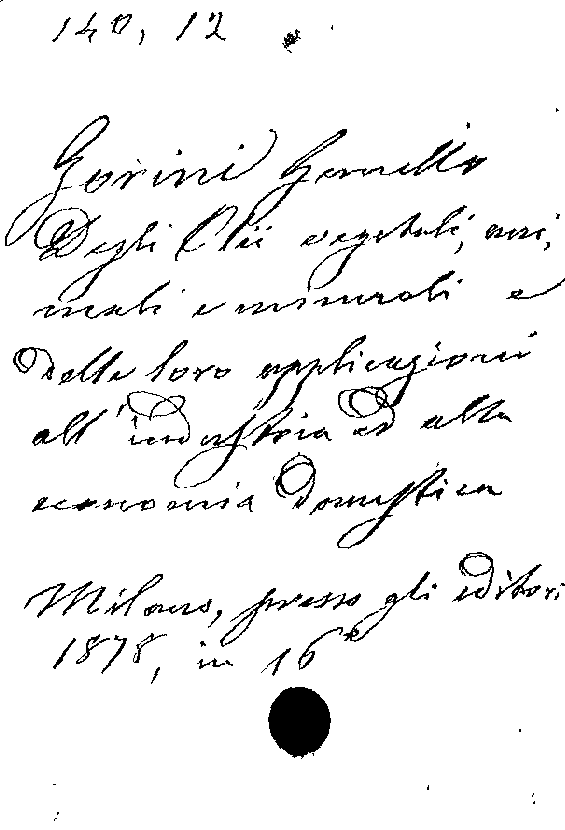 140, 12
Gorini Gemello
Degli Olii vegetali, ani,
mali e minerali e
delle loro applicazioni
all'industria ed alla
economia domestica
Milano, presso gli editori
1878, in 16°